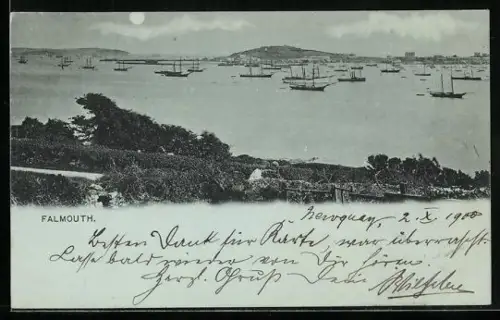 FALMOUTH.
Newquay, 2. X. 1900
Besten Dank für Karte, war überrascht.
Lasse bald wieder von Dir hören.
Herzl. Gruß Dein